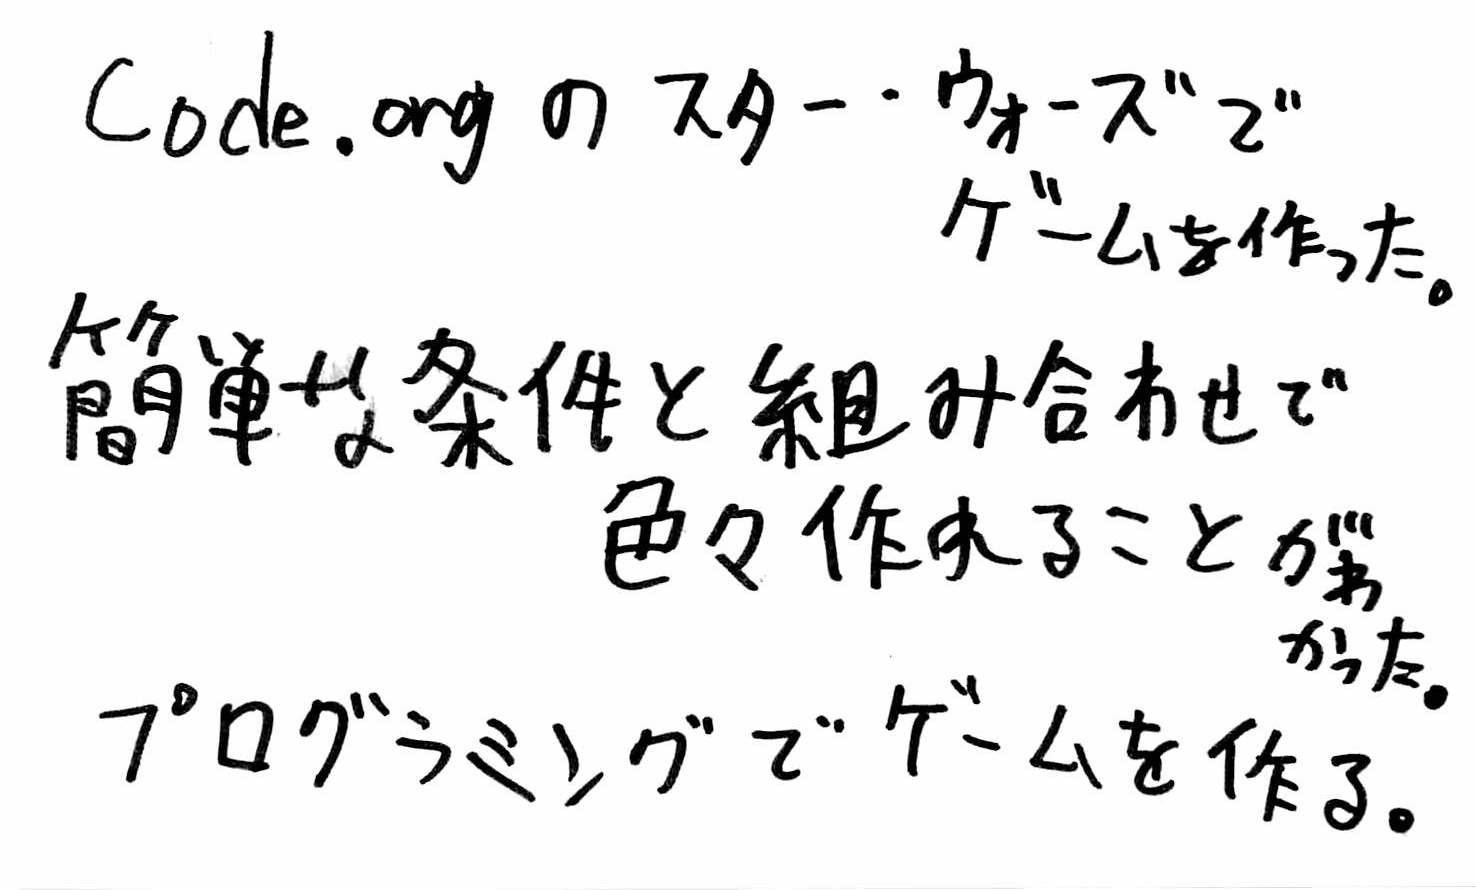 Code.orgのスター・ウォーズで
ゲームを作った。
簡単な条件と組み合わせで
色々作れることがわ
かった。
プログラミングでゲームを作る。